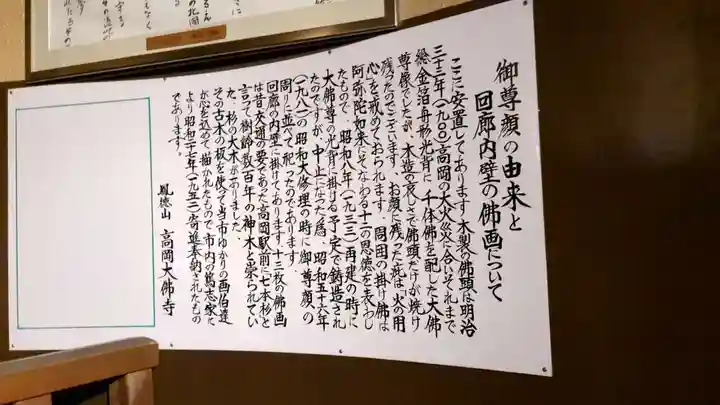 御尊顔の由来と
回廊内壁の佛画について
ここに安置してあります木製の佛頭は明治
三十三年(一九〇〇)高岡の大火災に合いそれまで
総金箔舟形光背に千体佛を配した大佛
尊像でしたが、木造の哀しさで佛頭だけが焼け
残ったのでございます。お顔に残った疵は「火の用
心」を戒めておられます。周囲の掛け佛は
阿弥陀如来にそなわる十二の恩徳を表わし
たもので、昭和八年(一九三三)再建の時に
大佛尊の光背に掛ける予定で鋳造され
たのですが、中止になった為、昭和五十六年
(一九八一)の昭和大修理の時に御尊顔の
周りに並べて祀ったのであります。
回廊の内壁に掛けてあります十三枚の佛画
は昔交通の要であった高岡駅前に七本杉と
言って樹齢数百年の神木と崇られてい
た、杉の大木がありました。
その古木の板を使って当市ゆかりの画伯達
が心を込めて描かれたもので市内の篤志家に
より昭和二十七年(一九五二)寄進奉納されたもの
であります。
鳳徳山 高岡大佛寺